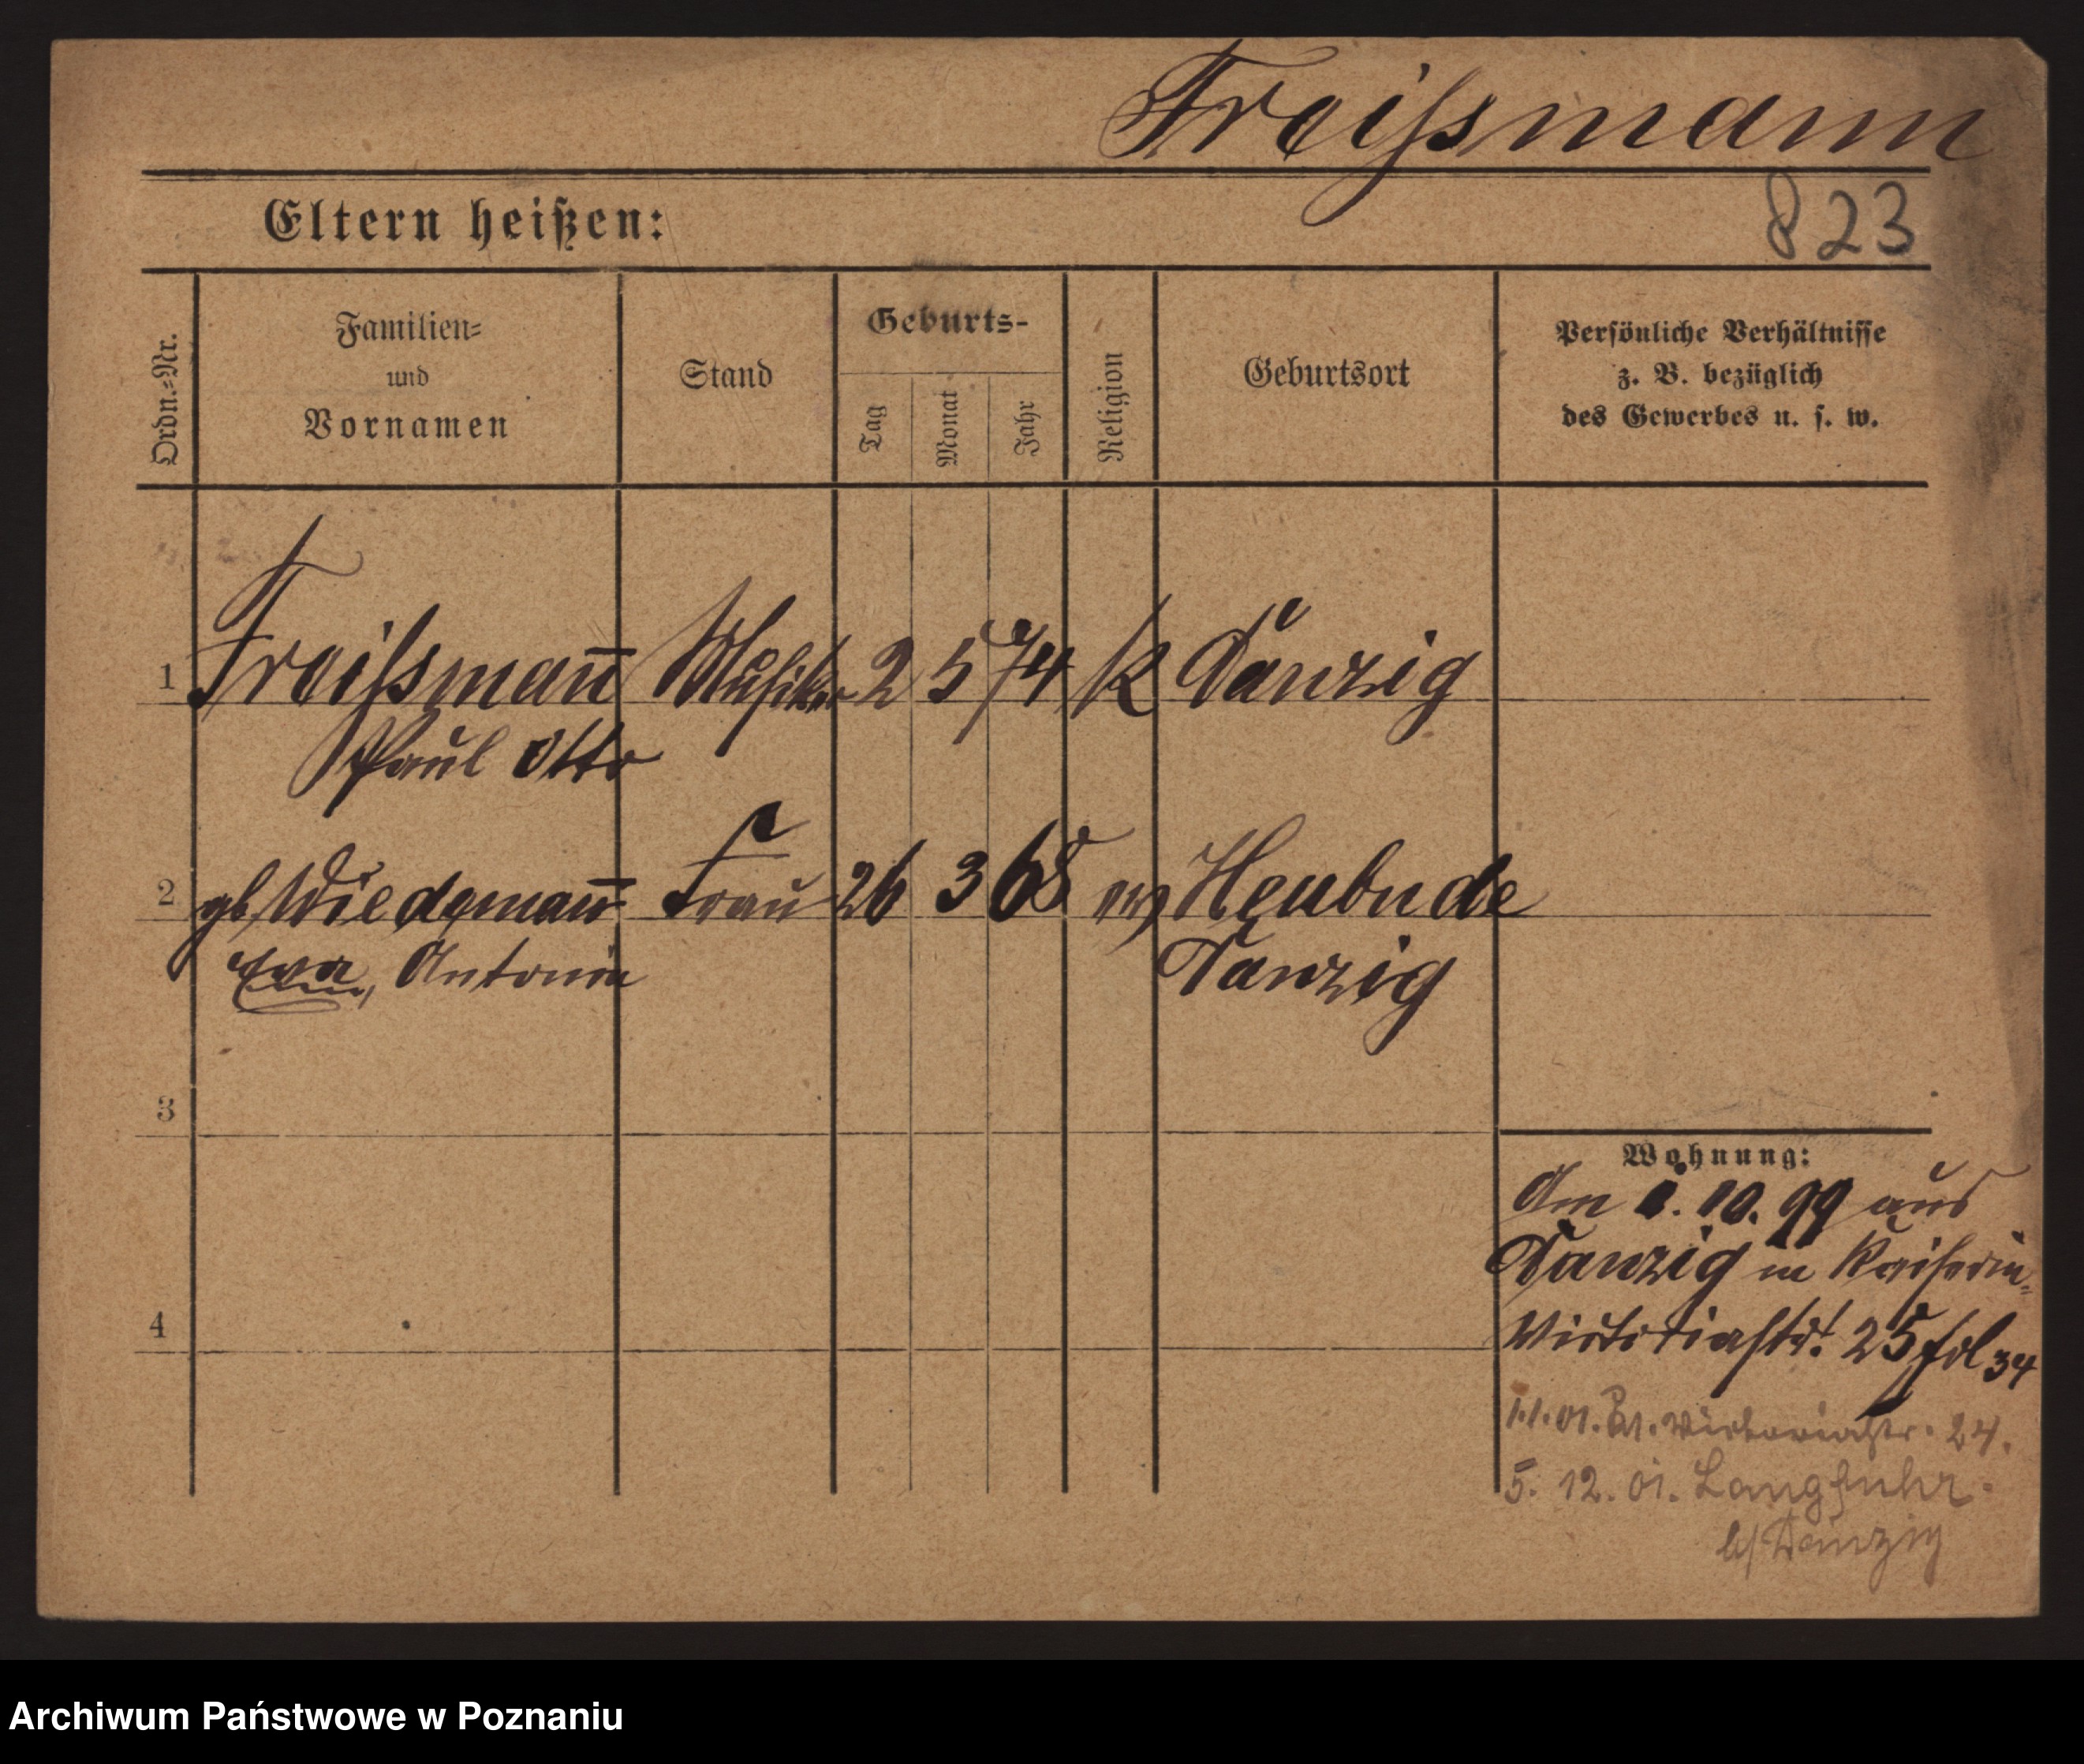 Froissmann
823
Eltern heißen:
Ordn.-Nr.
Familien-
und
Vornamen
Stand
Geburts-
Tag
Monat
Jahr
Religion
Geburtsort
Persönliche Verhältnisse
z. B. bezüglich
des Gewerbes u. s. w.
1 Froissman̄ Musiker 2 5 74 K Danzig
Paul Otto
2 gb Wiedeman̄ Frau 26 3 68 Heubude
Eva, Antonie Danzig
3
Wohnung:
Am 1. 10. 99 aus
Danzig in Kaiserin-
4
Victoriastr. 25 fol 34
1.1.01. Victoriastr. 24.
5. 12. 01. Langfuhr.
b/Danzig
Archiwum Państwowe w Poznaniu